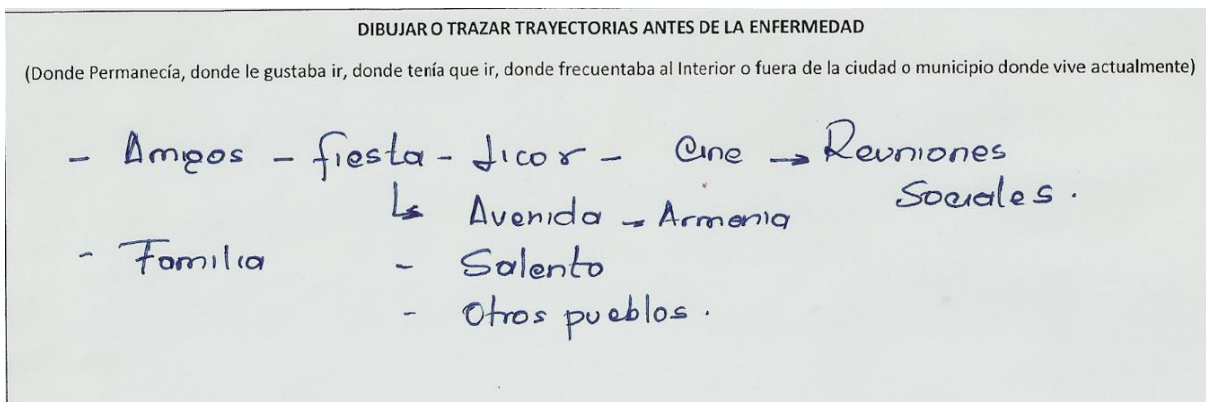 DIBUJAR O TRAZAR TRAYECTORIAS ANTES DE LA ENFERMEDAD
(Donde Permanecía, donde le gustaba ir, donde tenía que ir, donde frecuentaba al Interior o fuera de la ciudad o municipio donde vive actualmente)
- Amigos - fiesta - Licor - Cine → Reuniones
Sociales.
↳ Avenida → Armenia
- Familia - Salento
- Otros pueblos.